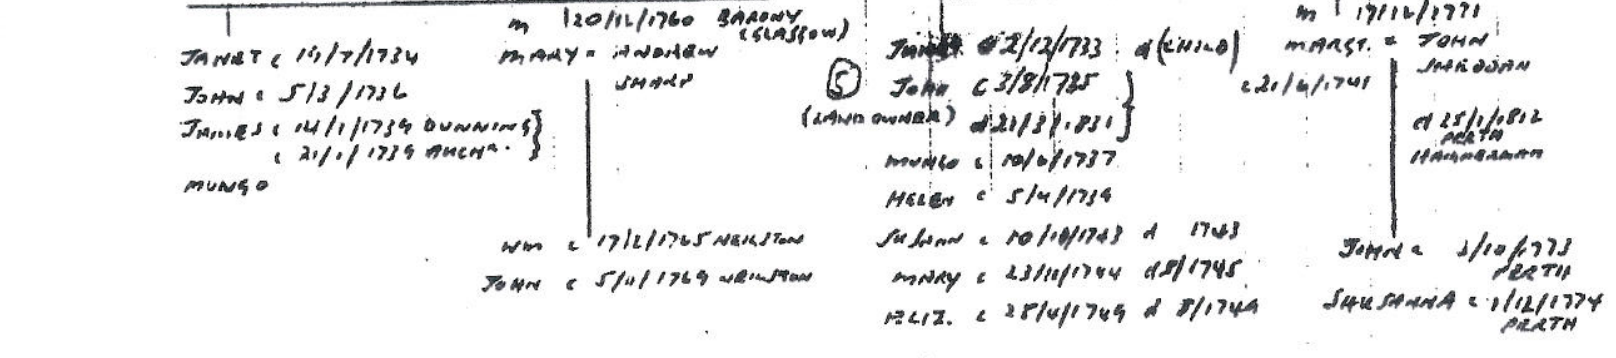 JANET c 19/7/1734
JOHN c 5/3/1736
JAMES c 14/1/1739 DUNNING }
c 21/1/1739 AUCHR. }
MUNGO
m 20/12/1760 BARONY
(GLASGOW)
MARY = ANDREW
SHARP
Wm c 17/2/1765 NEILSTON
JOHN c 5/11/1769 NEILSTON
2/12/1733 d (CHILD)
5 John c 3/8/1735 }
(LANDOWNER) d 21/3/1831 }
MUNGO c 10/6/1737
HELEN c 5/4/1739
SUSANN c 10/10/1743 d 1743
MARY c 23/11/1744 d 8/1745
ELIZ. c 28/4/1749 d 8/1749
m 17/12/1771
MARGT. = JOHN
c 21/6/1741
d 25/1/1812
PERTH
HAMMERMAN
JOHN c 3/10/1773
PERTH
SHUSANNA c 1/12/1774
PERTH